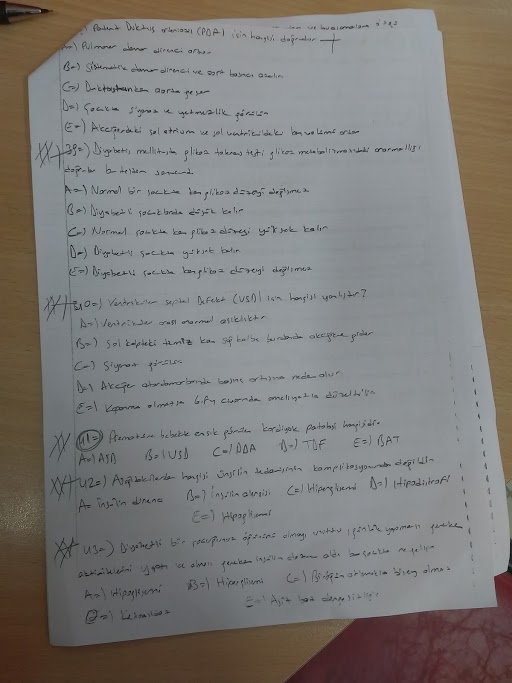 Patent Duktus (PDA) için hangisi doğrudur
A=) Pulmoner damar direnci artar
B=) Sistematik damar direnci ve aort basıncı azalır
C=) aorta geçer
D=) Çocukta siyanoz ve yetmezlik görülür
E=) Akciğerdeki sol atrium ve sol ventriküldeki kan volümü artar
39=) Diyabetis mellitusta glikoz tolerans testi glikoz metabolizmasındaki anormalliği
doğrular bu testin sonucunda
A=) Normal bir çocukta kan glikoz düzeyi değişmez
B=) Diyabetli çocuklarda düşük kalır
C=) Normal çocukta kan glikoz düzeyi yüksek kalır
D=) Diyabetli çocukta yüksek kalır
E=) Diyabetli çocukta kan glikoz düzeyi değişmez
40=) Ventriküler septal Defekt (VSD) için hangisi yanlıştır?
A=) Ventriküller arası anormal açıklıktır
B=) Sol kalpteki temiz kan sağ kalbe buradanda akciğere gider
C=) Siyanoz görülür
D=) Akciğer atardamarlarında basınç artışına neden olur
E=) Kapanma olmazsa 6. ay civarında ameliyatla düzeltilir
41=) Prematüre bebekte en sık görülen kardiyak patoloji hangisidir
A=) ASD B=) VSD C=) PDA D=) TOF E=) BAT
42=) Aşağıdakilerden hangisi insülin tedavisinin komplikasyonundan değildir
A=) insülin direnci B=) İnsülin alerjisi C=) Hiperglisemi D=) Lipodistrofi
E=) Hipoglisemi
43=) Diyabetli bir çocuğunuz öğününü almayı unuttu günlük yapması gereken
aktivitelerini yaptı ve alması gereken insülin dozunu aldı bu çocukta ne gelişir
A=) Hipoglisemi B=) Hiperglisemi C=) bişey olmaz
D=) Ketoasidoz E=) Asit baz dengesizliği